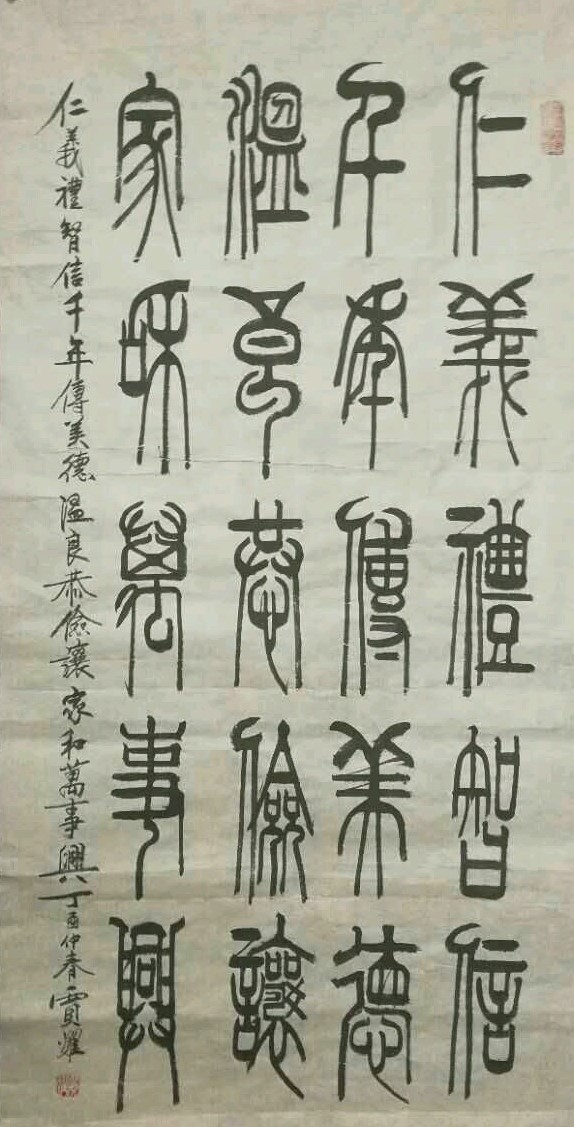 仁義禮智信
千年傳美德
溫良恭儉讓
家和萬事興
仁義禮智信千年傳美德溫良恭儉讓家和萬事興丁酉仲春賈耀